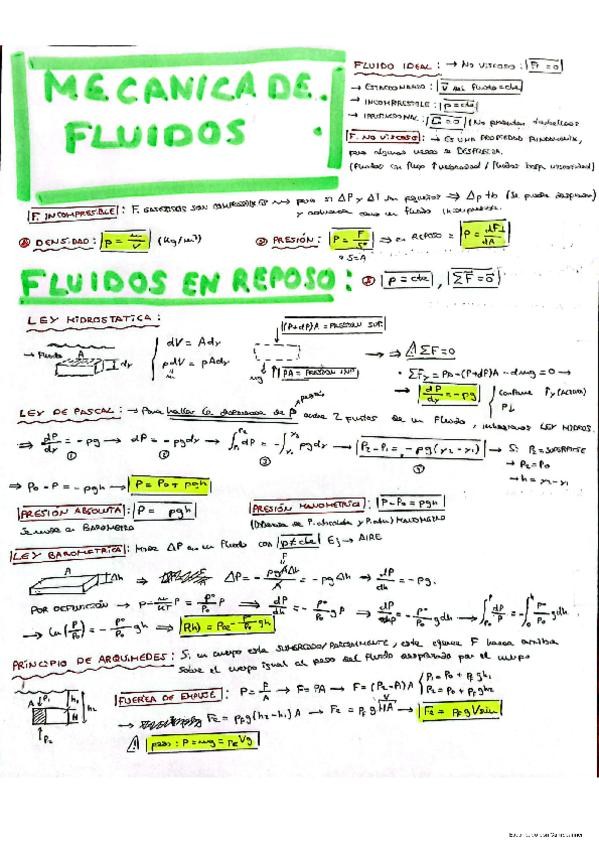 MECANICA DE
FLUIDOS
FLUIDO IDEAL: → NO VISCOSO: Fr = 0
→ ESTACIONARIO: V del fluido = cte
→ INCOMPRESIBLE: ρ = cte
→ IRROTACIONAL: = 0 (No presentan torbellinos
F. NO VISCOSO: → ES UNA PROPIEDAD FUNDAMENTAL,
para algunos casos se DESPRECIA.
(Fluidos con flujo ↑ velocidad / Fluidos baja viscosidad)
F. INCOMPRESIBLE: F. GASEOSOS SON COMPRESIBLES → pero si ΔP y ΔT son pequeños ⇒ Δρ → 0 (Se puede despreciar)
y como un fluido incompresible.
① DENSIDAD: ρ = m/V (Kg/m³)
② PRESIÓN: P = F/S → en REPOSO = P = dF⊥/dA
* S = A
FLUIDOS EN REPOSO: ρ = cte, ΣF = 0
LEY HIDROSTATICA:
→ Fluido A dy
dV = Ady
ρdV = ρAdy
m
(P+dP)A = PRESION SUP.
mg PA = PRESION INF
→ ⇒ ΣF = 0
• ΣFy = PA - (P+dP)A - dmg = 0 →
→ dP/dy = -ρg conforme ↑y (ALTURA) P↓
LEY DE PASCAL: → Para hallar la diferencia de P entre 2 puntos de un fluido, integramos LEY HIDROS.
presión
⇒ dP/dy = -ρg → dP = -ρgdy → ∫ dP = -∫ ρgdy → P2 - P1 = -ρg(y2 - y1) → Si P2 = SUPERFICIE
→ P2 = P0
→ h = y2 - y1
⇒ P0 - P = -ρgh → P = P0 + ρgh
PRESIÓN ABSOLUTA: P = ρgh
Se mide en BAROMETRO
PRESIÓN MANOMETRICA: P - P0 = ρgh
(Diferencia de P. absoluta y P. atm) MANOMETRO
LEY BAROMETRICA: MIDE ΔP en un fluido con ρ ≠ cte Ej → AIRE
A Δh ⇒ ΔP = - ρgAΔh/A = -ρgΔh → dP/dh = -ρg.
POR DEFINICIÓN →
→ Ln(P/P0) = - ρ0/P0 gh →
PRINCIPIO DE ARQUIMEDES: Si un cuerpo esta SUMERGIDO/PARCIALMENTE, este ejerce F hacia arriba
sobre el cuerpo igual al peso del fluido desplazado por el cuerpo
A P1 h1 h2 H P2
FUERZA DE EMPUJE: P = F/A → F = PA → F = (P2 - P1)A P1 = P0 + ρf gh1
P2 = P0 + ρf gh2
→ FE = ρf g(h2 - h1)A → FE = ρf g HA → FE = ρf g Vsum
V
peso: P = mg = ρc Vg